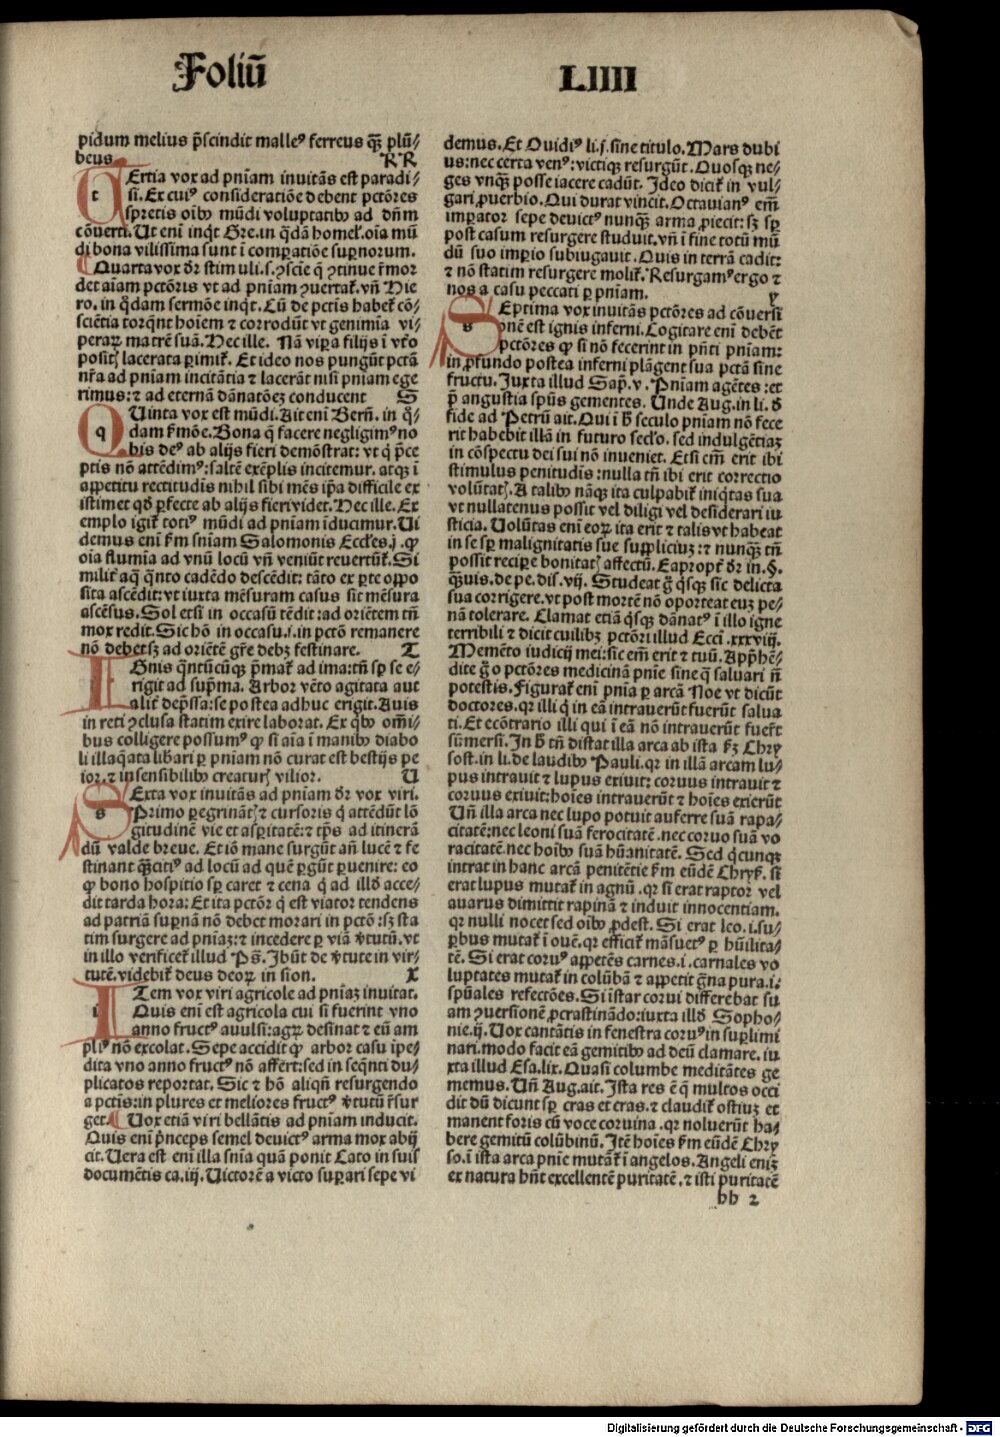 Foliū LIIII
pidum melius p̄scindit malleꝰ ferreus qꝫ̄ plū⸗
beus. RR
TErtia vox ad pn̄iam inuitās est paradi⸗
si. Ex cuiꝰ consideratiōe debent pctōres
spretis oībꝰ mūdi voluptatibꝰ ad dn̄m
cōuerti. Ut eni inqt Gre. in qdā homel'. oia mū
di bona vilissima sunt ī comꝑatiōe suꝑnorum.
Quarta vox dr̄ stimuli. s. ꝯscīe q̄ ꝯtinue r̄mor
det aīam pctōris vt ad pn̄iam ꝯuertat̉. vn̄ Hie
ro. in qdam sermōe inqt. Cū de pctīs habet̉ cō⸗
sciētia torqn̄t hoīem ⁊ corrodūt vt genimīa vi⸗
peraꝝ matrē suā. Hec ille. Nā viꝑa filijs ī vtr̄o
positꝭ lacerata ꝑimit̉. Et ideo nos pungūt pctā
nr̄a ad pn̄iam incitātia ⁊ lacerāt nisi pn̄iam ege
rimus: ⁊ ad eternā dānatōeꝫ conducent S
QUinta vox est mūdi. Ait eni Bern̄. in q̄⸗
dam ẜmōe. Bona q̄ facere negligimꝰ no
bis deꝰ ab alijs fieri demōstrat: vt q̄ p̄ce
ptis nō attēdimꝰ: saltē exēplis incitemur. atqꝫ ī
appetitu rectitudīs nihil sibi mēs ip̄a difficile ex
istimet qd̄ ꝑfecte ab alijs fieri videt. Hec ille. Ex
emplo igit̉ totiꝰ mūdi ad pn̄iam īducimur. Ui
demus eni ẜm sn̄iam Salomonis Eccl'es. j. ꝙ
oīa flumīa ad vnū locū vn̄ veniūt reuertūt̉. Si
milit̉ aq̄ qn̄to cadēdo descēdit: tāto ex ꝑte oppo
sita ascēdit: vt iuxta mēsuram casus sit mēsura
ascēsus. Sol etsi in occasū tēdit: ad oriētem tn̄
mox redit. Sic hō in occasu. i. in pctō remanere
nō debet sꝫ ad oriētē gr̄e debꝫ festinare. T
IGnis qn̄tūcūqꝫ p̄mat̉ ad ima: tn̄ sꝑ se e⸗
rigit ad suꝓma. Arbor vēto agitata aut
alit̉ dep̄ssa: se postea adhuc erigit. Auis
in reti ꝯclusa statim exire laborat. Ex qbꝰ om̄i⸗
bus colligere possumꝰ ꝙ si aīa ī manibꝰ diabo
li illaqata lib̉ari ꝑ pn̄iam nō curat est bestijs pe
ior. ⁊ insensibilibꝰ creaturꝭ vilior. U
SExta vox inuitās ad pn̄iam dr̄ vox viri.
Primo ꝑegrinātꝭ ⁊ cursoris q̄ attēdūt lō
gitudinē vie et asꝑitatē: ⁊ tp̄s ad itinerā
dū valde breue. Et iō mane surgūt an̄ lucē ⁊ fe
stinant qꝫ̄citiꝰ ad locū ad quē ꝑgūt ꝑuenire: eo
ꝙ bono hospitio sꝑ caret ⁊ cena q̄ ad ill'd acce⸗
dit tarda hora: Et ita pctōr q̄ est viator tendens
ad patriā suꝑnā nō debet morari in pctō: sꝫ sta
tim surgere ad pn̄iaꝫ: ⁊ incedere ꝑ viā v̄tutū. vt
in illo verificet̉ illud Ps̄. Ibūt de v̄tute in vir⸗
tutē. videbit̉ deus deoꝝ in sion. X
ITem vox viri agricole ad pn̄iaꝫ inuitat.
Quis eni est agricola cui si fuerint vno
anno fructꝰ auulsi: agꝝ desinat ⁊ eū am
pliꝰ nō excolat. Sepe accidit ꝙ arbor casu īpe⸗
dita vno anno fructꝰ nō affert: sed in seqn̄ti du⸗
plicatos reportat. Sic ⁊ hō aliqn̄ resurgendo
a pctīs: in plures et meliores fructꝰ v̄tutū r̄sur
get. Uox etiā viri bellātis ad pn̄iam inducit.
Quis eni p̄nceps semel deuictꝰ arma mox abij
cit. Uera est eni illa sn̄ia quā ponit Cato in suis
documētis ca. iij. Uictorē a victo suꝑari sepe vi
demus. Et Ouidiꝰ li. j. sine titulo. Mars dubi
us: nec certa venꝰ: victiqꝫ resurgūt. Quosqꝫ ne⸗
ges vnqꝫ̄ posse iacere cadūt. Ideo dicit̉ in vul⸗
gari ꝓuerbio. Qui durat vincit. Octauianꝰ em̄
imꝑator sepe deuictꝰ nunqꝫ̄ arma ꝓiecit: sꝫ sꝑ
post casum resurgere studuit. vn̄ ī fine totū mū
dū suo imꝑio subiugauit. Quis in terrā cadit:
⁊ nō statim resurgere molit̉. Resurgamꝰ ergo ⁊
nos a casu peccati ꝑ pn̄iam. Y
SEptima vox inuitās pctōres ad cōuersi
onē est ignis inferni. Cogitare eni debēt
pctōres ꝙ si nō fecerint in pn̄ti pn̄iam:
in ꝓfundo postea inferni plāgent sua pctā sine
fructu. Juxta illud Sap̄. v. Pn̄iam agētes: et
p̄ angustia spūs gementes. Unde Aug. in li. d̄
fide ad Petrū ait. Qui ī h̄ seculo pn̄iam nō fece
rit habebit illā in futuro sec'lo. sed indulgētiaꝫ
in cōspectu dei sui nō inueniet. Etsi em̄ erit ibi
stimulus penitudīs: nulla tn̄ ibi erit correctio
volūtatꝭ. A talibꝰ nāqꝫ ita culpabit̉ iniqtas sua
vt nullatenus possit vel diligi vel desiderari iu
sticia. Uolūtas eni eoꝝ ita erit ⁊ talis vt habeat
in se sꝑ malignitatis sue suꝑpliciuꝫ: ⁊ nunqꝫ̄ tn̄
possit reciꝑe bonitatꝭ affectū. Eapropt̉ dr̄ in. §.
qꝫ̄uis. de pe. dis. vij. Studeat g̊ qsqꝫ sic delicta
sua corrigere. vt post mortē nō oporteat euꝫ pe⸗
nā tolerare. Clamat etiā qsqꝫ dānatꝰ ī illo igne
terribili ⁊ dicit cuilibꝫ pctōri illud Ecci. xxxviij.
Memēto iudicij mei: sic em̄ erit ⁊ tuū. Apꝓhē⸗
dite g̊ o pctōres medicinā pn̄ie sine q̄ saluari n̄
potestis. Figurat̉ eni pn̄ia ꝑ arcā Noe vt dicūt
doctores. qr illi q̄ in eā intrauerūt fuerūt salua
ti. Et ecōtrario illi qui ī eā nō intrauerūt fuer̄t
sūmersi. In h̄ tn̄ distat illa arca ab ista ẜꝫ Chry
sost. in li. de laudibꝰ Pauli. qr in illā arcam lu⸗
pus intrauit ⁊ lupus exiuit: coruus intrauit ⁊
coruus exiuit: hoīes intrauerūt ⁊ hoīes exierūt
Un̄ illa arca nec lupo potuit auferre suā rapa⸗
citatē: nec leoni suā ferocitatē. nec coruo suā vo
racitatē nec hoībꝰ suā hūanitatē. Sed qcunqꝫ
intrat in hanc arcā penitētie ẜm eūdē Chrys̄. si
erat lupus mutat̉ in agnū. qr si erat raptor vel
auarus dimittit rapinā ⁊ induit innocentiam.
qr nulli nocet sed oībꝰ ꝓdest. Si erat leo. i. su⸗
ꝑbus mutat̉ ī ouē. qr efficit̉ māsuetꝰ ꝑ hūilita⸗
tē. Si erat coruꝰ appetēs carnes. i. carnales vo
luptates mutat̉ in colūbā ⁊ appetit g̊na pura. i.
spūales refectōes. Si īstar corui differebat su
am ꝯuersionē ꝓcrastināndo: iuxta ill'd Sopho⸗
nie. ij. Uox cantātis in fenestra coruꝰ in suꝑlimi
nari. modo facit eā gemitibꝰ ad deū clamare. iu
xta illud Esa. lix. Quasi columbe meditātes ge
memus. Un̄ Aug. ait. Ista res ē q̄ multos occi
dit dū dicunt sꝑ cras et cras. ⁊ claudit̉ ostiuꝫ et
manent foris cū voce coruina. qr noluerūt ha⸗
bere gemitū colūbinū. Itē hoīes ẜm eūdē Chry
so. ī ista arca pn̄ie mutāt̉ ī angelos. Angeli eniꝫ
ex natura hn̄t excellentē puritatē. ⁊ isti puritatē
bb 2
Digitalisierung gefördert durch die Deutsche Forschungsgemeinschaft - DFG